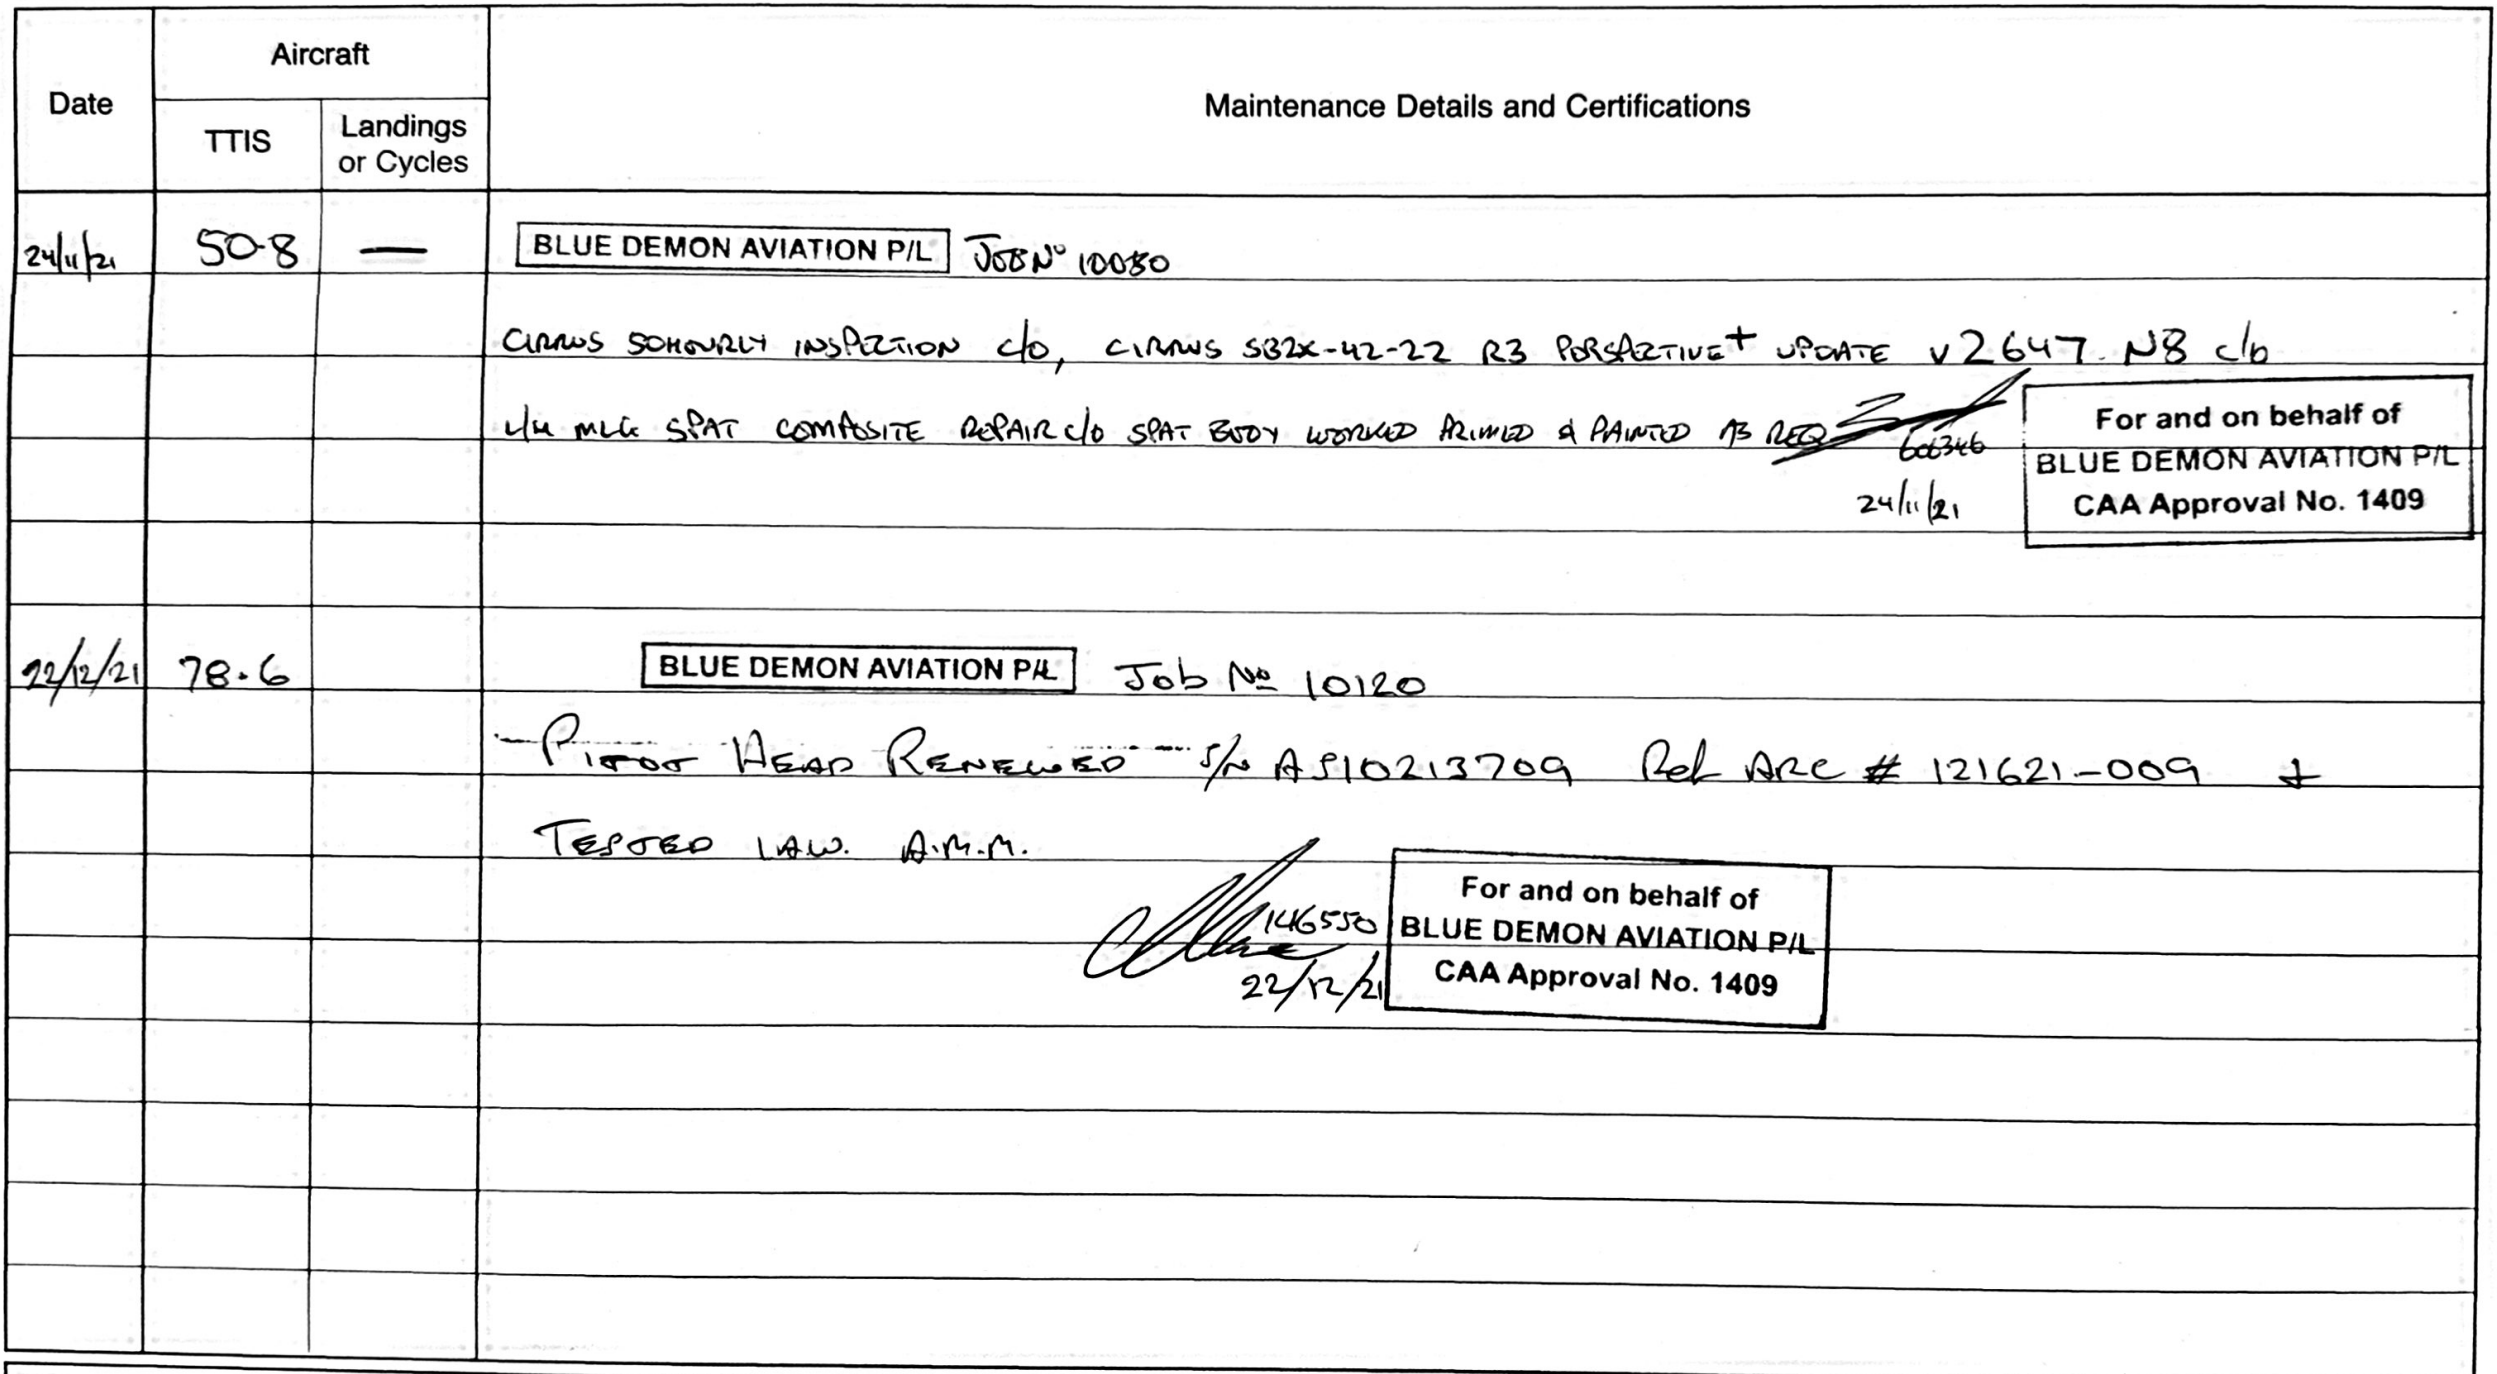 Date
Aircraft
TTIS
Landings
or Cycles
Maintenance Details and Certifications
24/11/21 50.8 — BLUE DEMON AVIATION P/L JOB Nº
CIRRUS 50HOURLY INSPECTION c/o, CIRRUS SB2X-42-22 R3 PERSPECTIVE+ UPDATE V2647.N8 c/o
L/H MLG SPAT COMPOSITE REPAIR c/o SPAT BODY WORKED PRIMED & PAINTED AS REQ
For and on behalf of
606346
BLUE DEMON AVIATION P/L
24/11/21
CAA Approval No. 1409
22/12/21 78.6 BLUE DEMON AVIATION P/L Job Nº 10120
- PITOT HEAD RENEWED S/N AS10213709 Ref ARC # 121621-009 &
TESTED I.A.W. A.M.M.
For and on behalf of
146550
BLUE DEMON AVIATION P/L
22/12/21
CAA Approval No. 1409